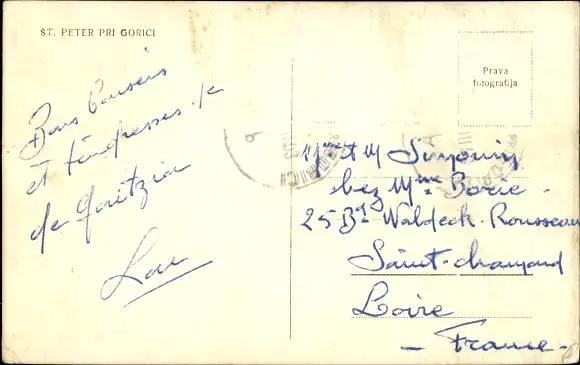 ŠT. PETER PRI GORICI
Bons baisers
et tendresses
de Goritzia
Prava
fotografija
Mme et M
chez Mme Borie -
25 Bd Waldeck-Rousseau
Saint-chamond
Loire
- France -